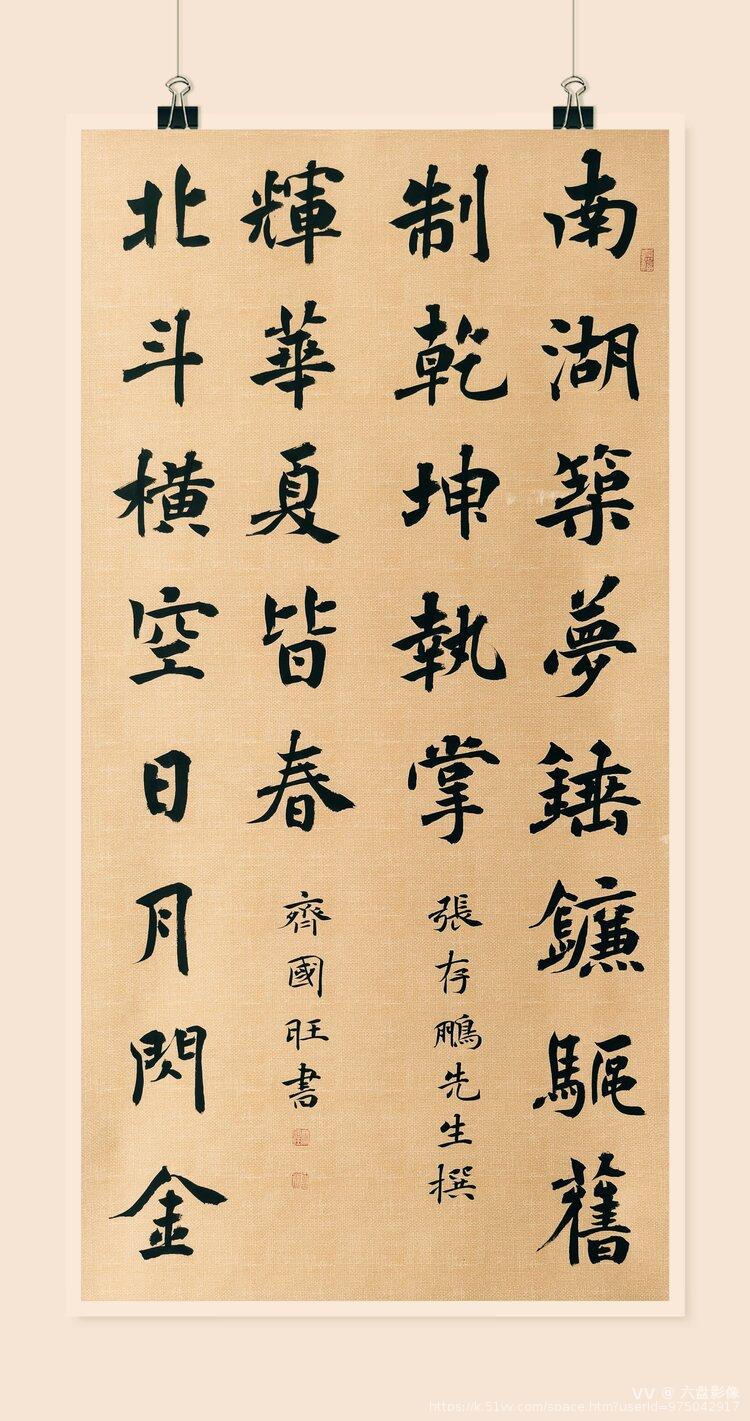 南湖築夢錘鐮驅舊
制乾坤執掌
張存鵬先生撰
北斗橫空日月閃金
輝華夏皆春
齊國旺書
VV @ 六盘影像
https://k.51vv.com/space.htm?userid=975042917